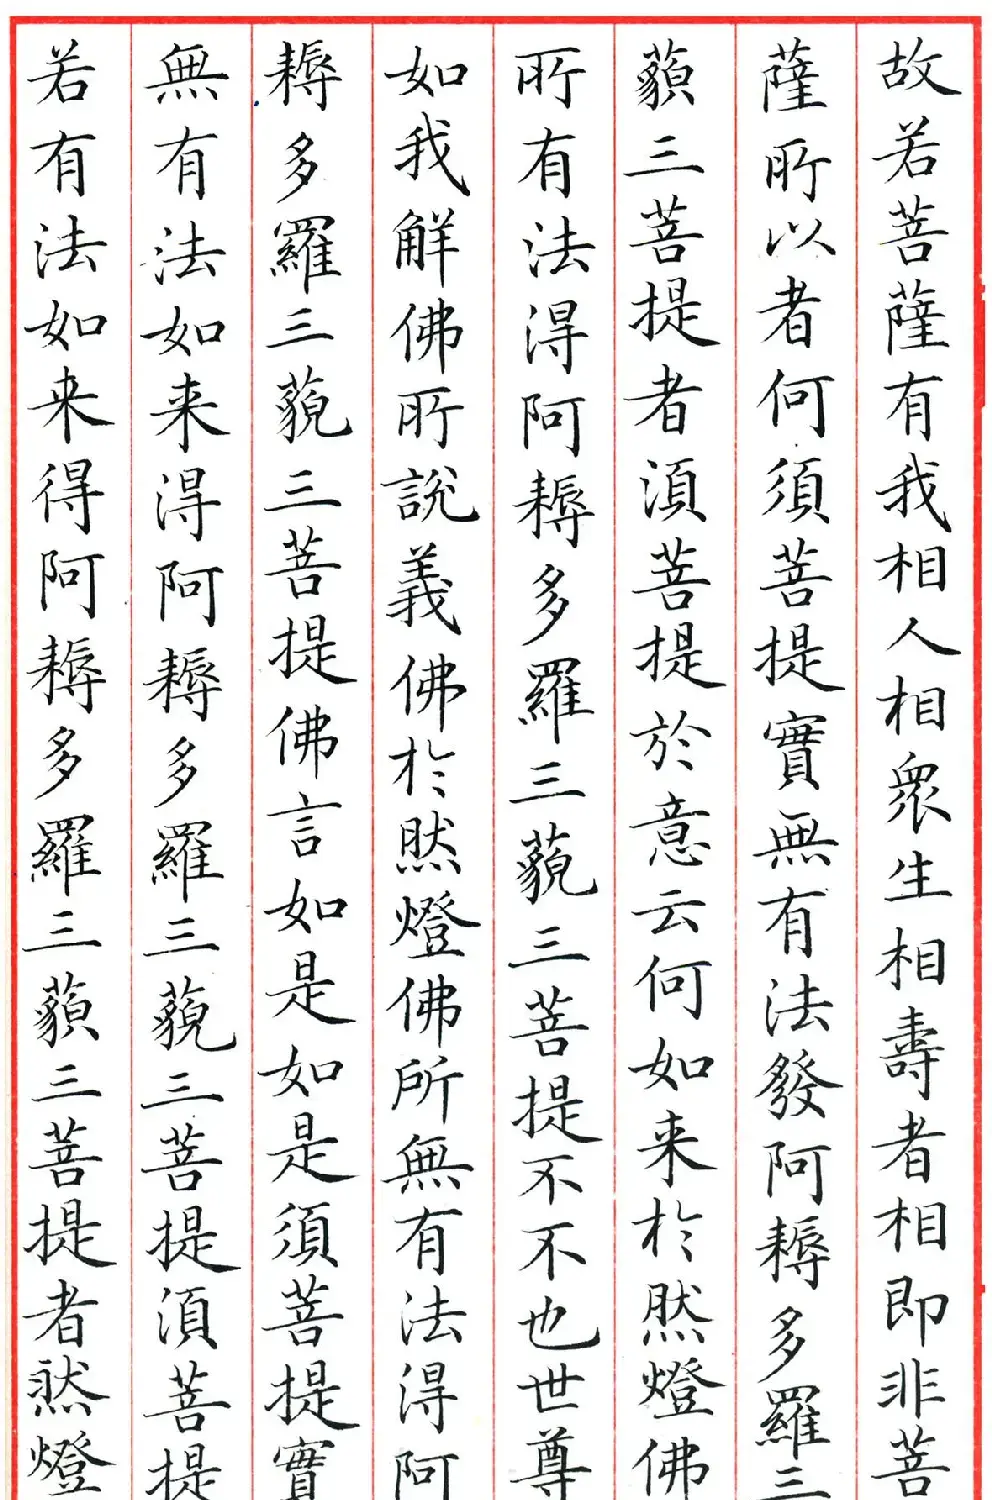 故若菩薩有我相人相衆生相壽者相即非菩
薩所以者何須菩提實無有法發阿耨多羅三
藐三菩提者須菩提於意云何如来於然燈佛
所有法得阿耨多羅三藐三菩提不不也世尊
如我解佛所說義佛於然燈佛所無有法得阿
耨多羅三藐三菩提佛言如是如是須菩提實
無有法如来得阿耨多羅三藐三菩提須菩提
若有法如来得阿耨多羅三藐三菩提者然燈